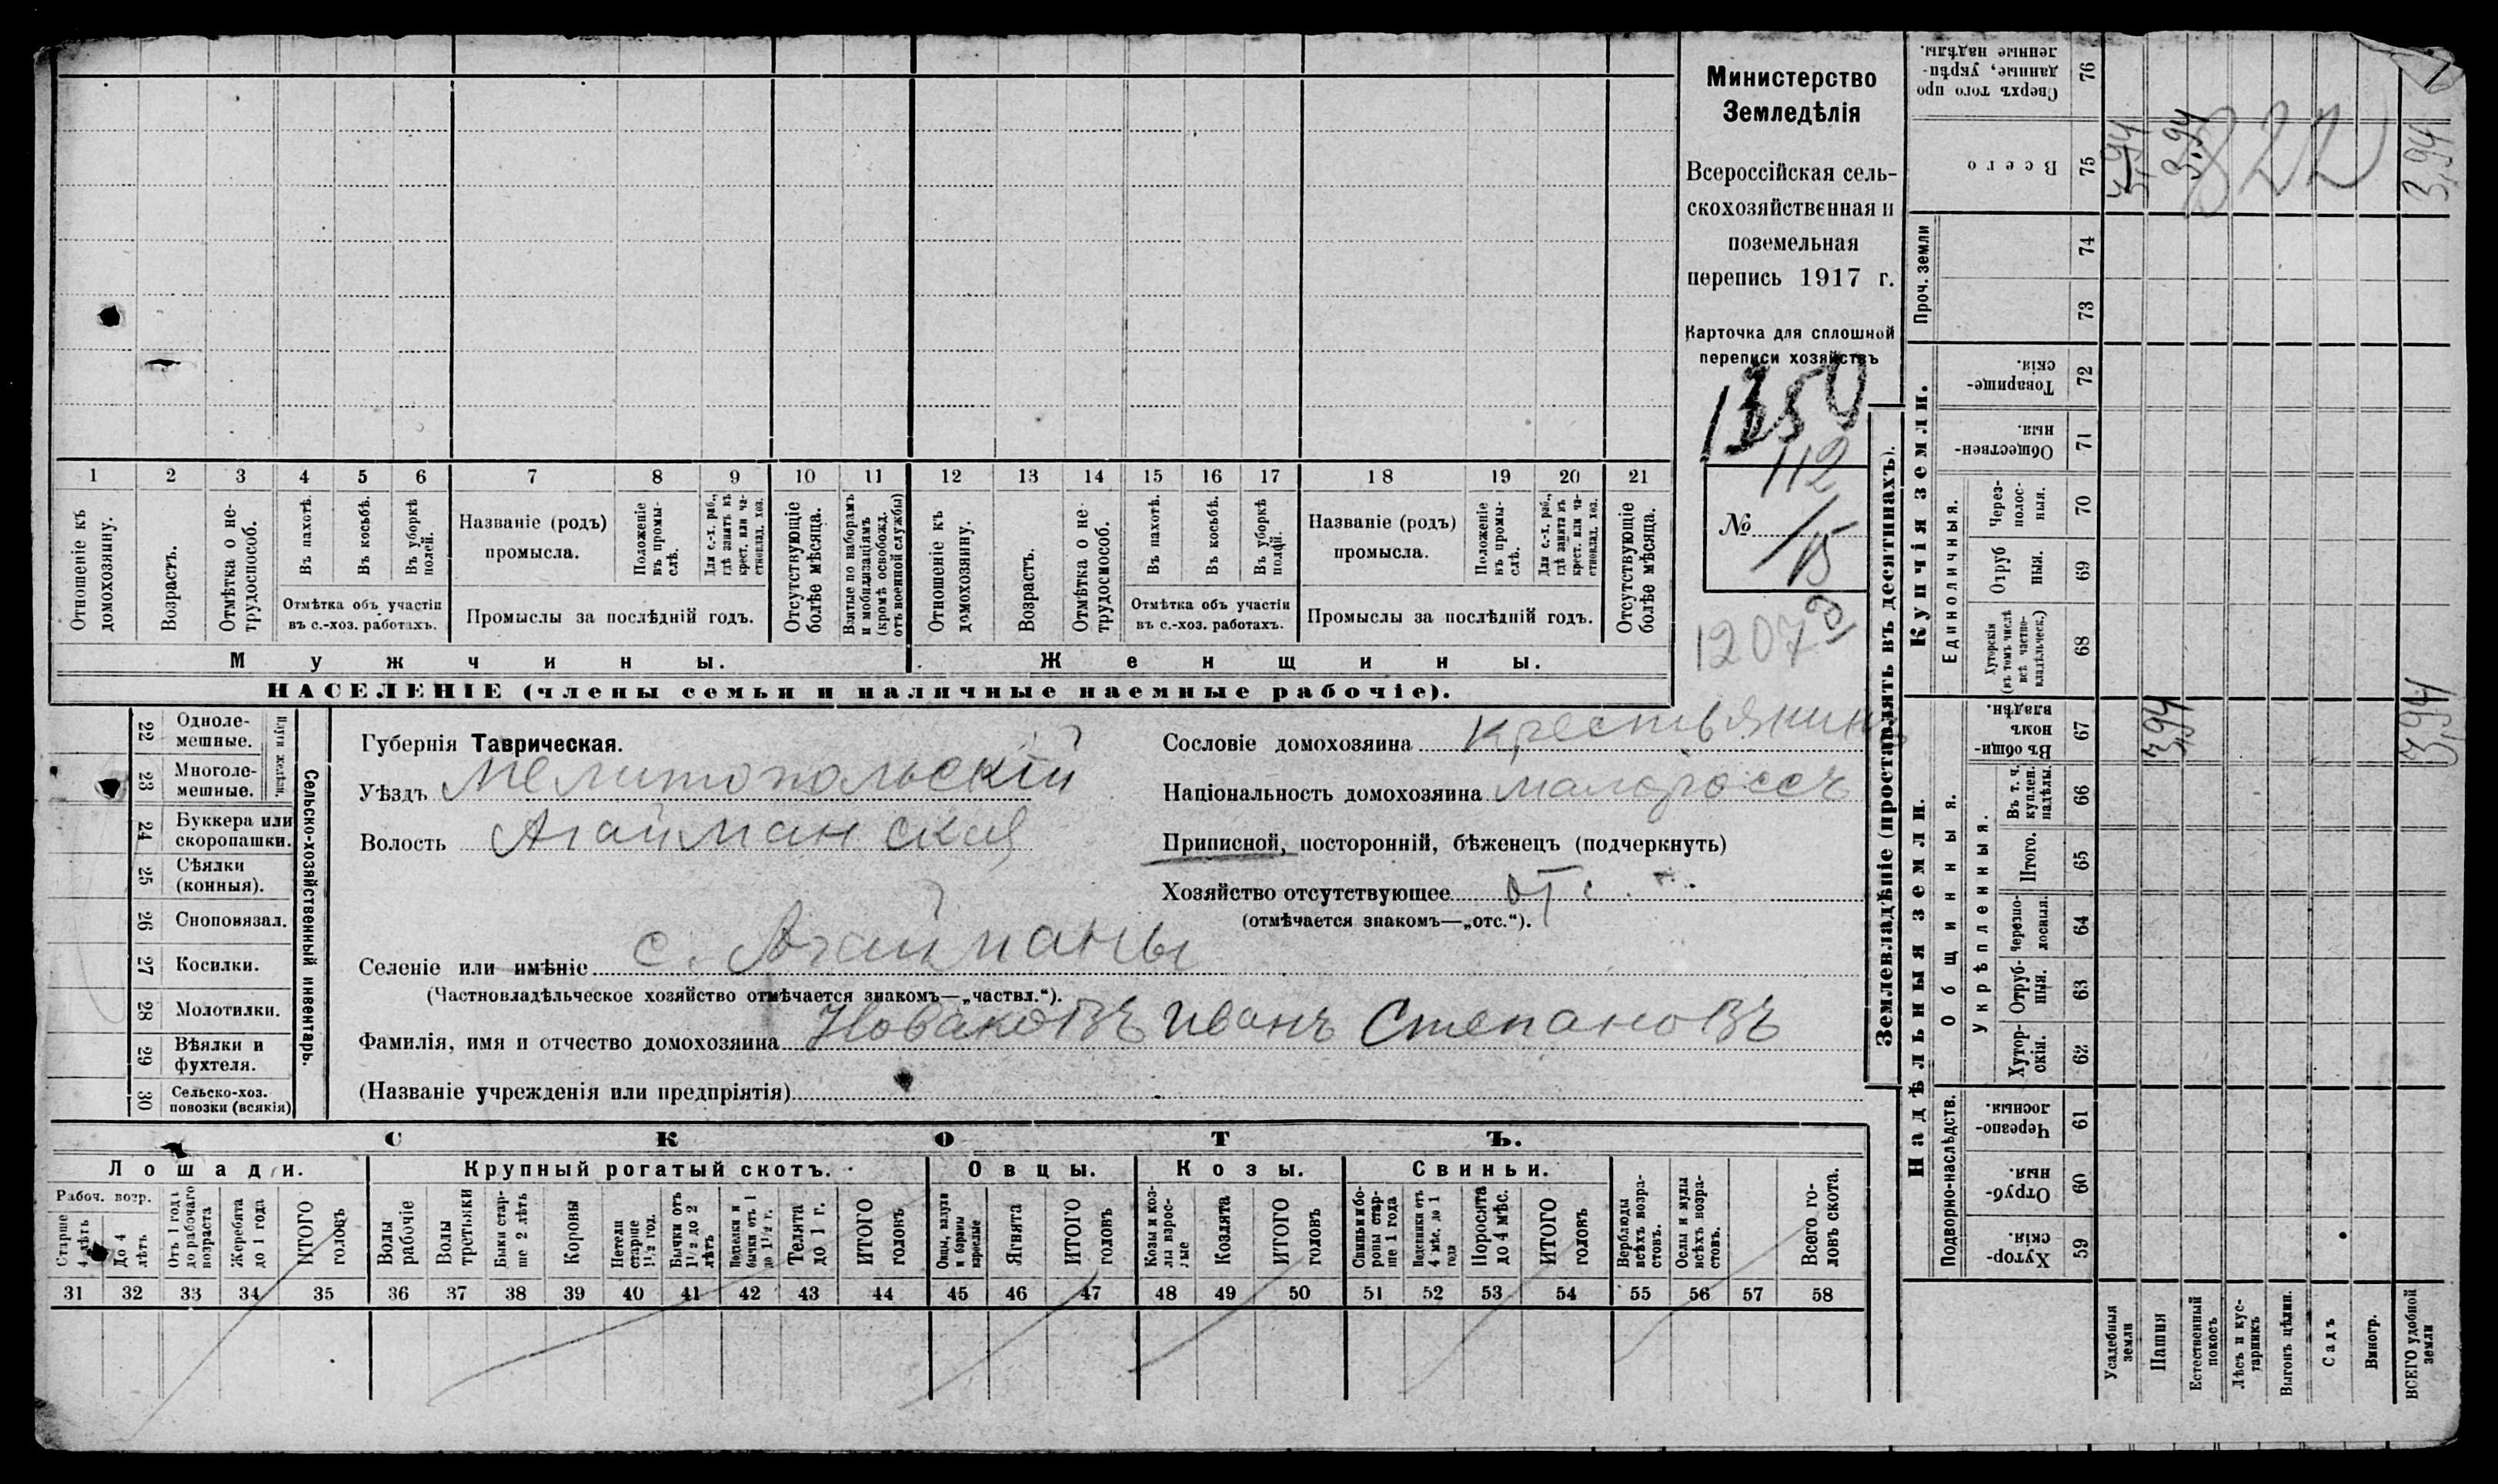 Министерство
Земледѣлія
Всероссійская сель-
скохозяйственная и
поземельная
перепись 1917 г.
Карточка для сплошной
переписи хозяйствъ
1350
112
№
15
1207
1 2 3 4 5 6 7 8 9 10 11 12 13 14 15 16 17 18 19 20 21
Отношеніе къ домохозяину.
Возрастъ.
Отмѣтка о не-трудоспособ.
Въ пахотѣ.
Въ косьбѣ.
Въ уборкѣ полей.
Отмѣтка объ участіи
въ с.-хоз. работахъ.
Названіе (родъ)
промысла.
Положеніе въ промы-слѣ.
Для с.-х. раб., гдѣ занятъ въ крест. или ча-стновлад. хоз.
Промыслы за послѣдній годъ.
Отсутствующіе болѣе мѣсяца.
Взятые по наборамъ и мобилизаціямъ (кромѣ освобожд. отъ военной службы)
Отношеніе къ домохозяину.
Возрастъ.
Отмѣтка о не-трудоспособ.
Въ пахотѣ.
Въ косьбѣ.
Въ уборкѣ полей.
Отмѣтка объ участіи
въ с.-хоз. работахъ.
Названіе (родъ)
промысла.
Положеніе въ промы-слѣ.
Для с.-х. раб., гдѣ занята въ крест. или ча-стновлад. хоз.
Промыслы за послѣдній годъ.
Отсутствующіе болѣе мѣсяца.
Мужчины.
Женщины.
НАСЕЛЕНІЕ (члены семьи и наличные наемные рабочіе).
Сельско-хозяйственный инвентарь.
Плуги желѣзн.
22 Одноле-мешные.
23 Многоле-мешные.
24 Буккера или скоропашки.
25 Сѣялки (конныя).
26 Сноповязал.
27 Косилки.
28 Молотилки.
29 Вѣялки и фухтеля.
30 Сельско-хоз. повозки (всякія)
Губернія Таврическая.
Уѣздъ Мелитопольскій
Волость Агайманская
Сословіе домохозяина крестьянинъ
Національность домохозяина малороссъ
Приписной, посторонній, бѣженецъ (подчеркнуть)
Хозяйство отсутствующее отс.
(отмѣчается знакомъ—„отс.“).
Селеніе или имѣніе с. Агайманы
(Частновладѣльческое хозяйство отмѣчается знакомъ—„частвл.“).
Фамилія, имя и отчество домохозяина Новаковъ Иванъ Степановъ
(Названіе учрежденія или предпріятія)
СКОТЪ.
Лошади.
Крупный рогатый скотъ.
Овцы.
Козы.
Свиньи.
Рабоч. возр.
Старше 4 лѣтъ
До 4 лѣтъ
Отъ 1 года до рабочаго возраста
Жеребята до 1 года
ИТОГО головъ
Волы рабочіе
Волы третьяки
Быки стар-ше 2 лѣтъ
Коровы
Нетели старше 1½ год.
Бычки отъ 1½ до 2 лѣтъ
бычки отъ 1 до 1½ г.
Телята до 1 г.
ИТОГО головъ
Овцы, валухи и бараны взрослые
Ягнята
ИТОГО головъ
Козы и коз-лы взрос-лые
Козлята
ИТОГО головъ
Свиньи бо-ровы стар-ше 1 года
Подсвинки отъ 4 мѣс. до 1 года
Поросята до 4 мѣс.
ИТОГО головъ
Верблюды всѣхъ возра-стовъ.
Ослы и мулы всѣхъ возра-стовъ.
Всего го-ловъ скота.
31 32 33 34 35 36 37 38 39 40 41 42 43 44 45 46 47 48 49 50 51 52 53 54 55 56 57 58
Землевладѣніе (проставлять въ десятинахъ).
Надѣльныя земли.
Купчія земли.
Проч. земли
Подворно-наслѣдств.
Общинныя.
Укрѣпленныя.
Единоличныя.
59 Хутор-скія.
60 Отруб-ныя.
61 Черезпо-лосныя.
62 Хутор-скія.
63 Отруб-ныя.
64 Черезпо-лосныя.
65 Итого.
66 Въ т. ч. куплен. надѣлы.
67 Въ общин-номъ владѣн. 3,94 3,94
68 Хуторскія (въ томъ числѣ всѣ частно-владѣльческ.)
69 Отруб ныя.
70 Через-полос-ныя.
71 Обществен-ныя.
72 Товарище-скія.
73
74
75 Всего 3,94 3,94 3,94
822
76 Сверхъ того про данные, укрѣп-ленные надѣлы.
Усадебныя земли
Пашня
Естественный покосъ
Лѣсъ и кус-тарникъ
Выгонъ цѣлин.
Садъ
Виногр.
ВСЕГО удобной земли